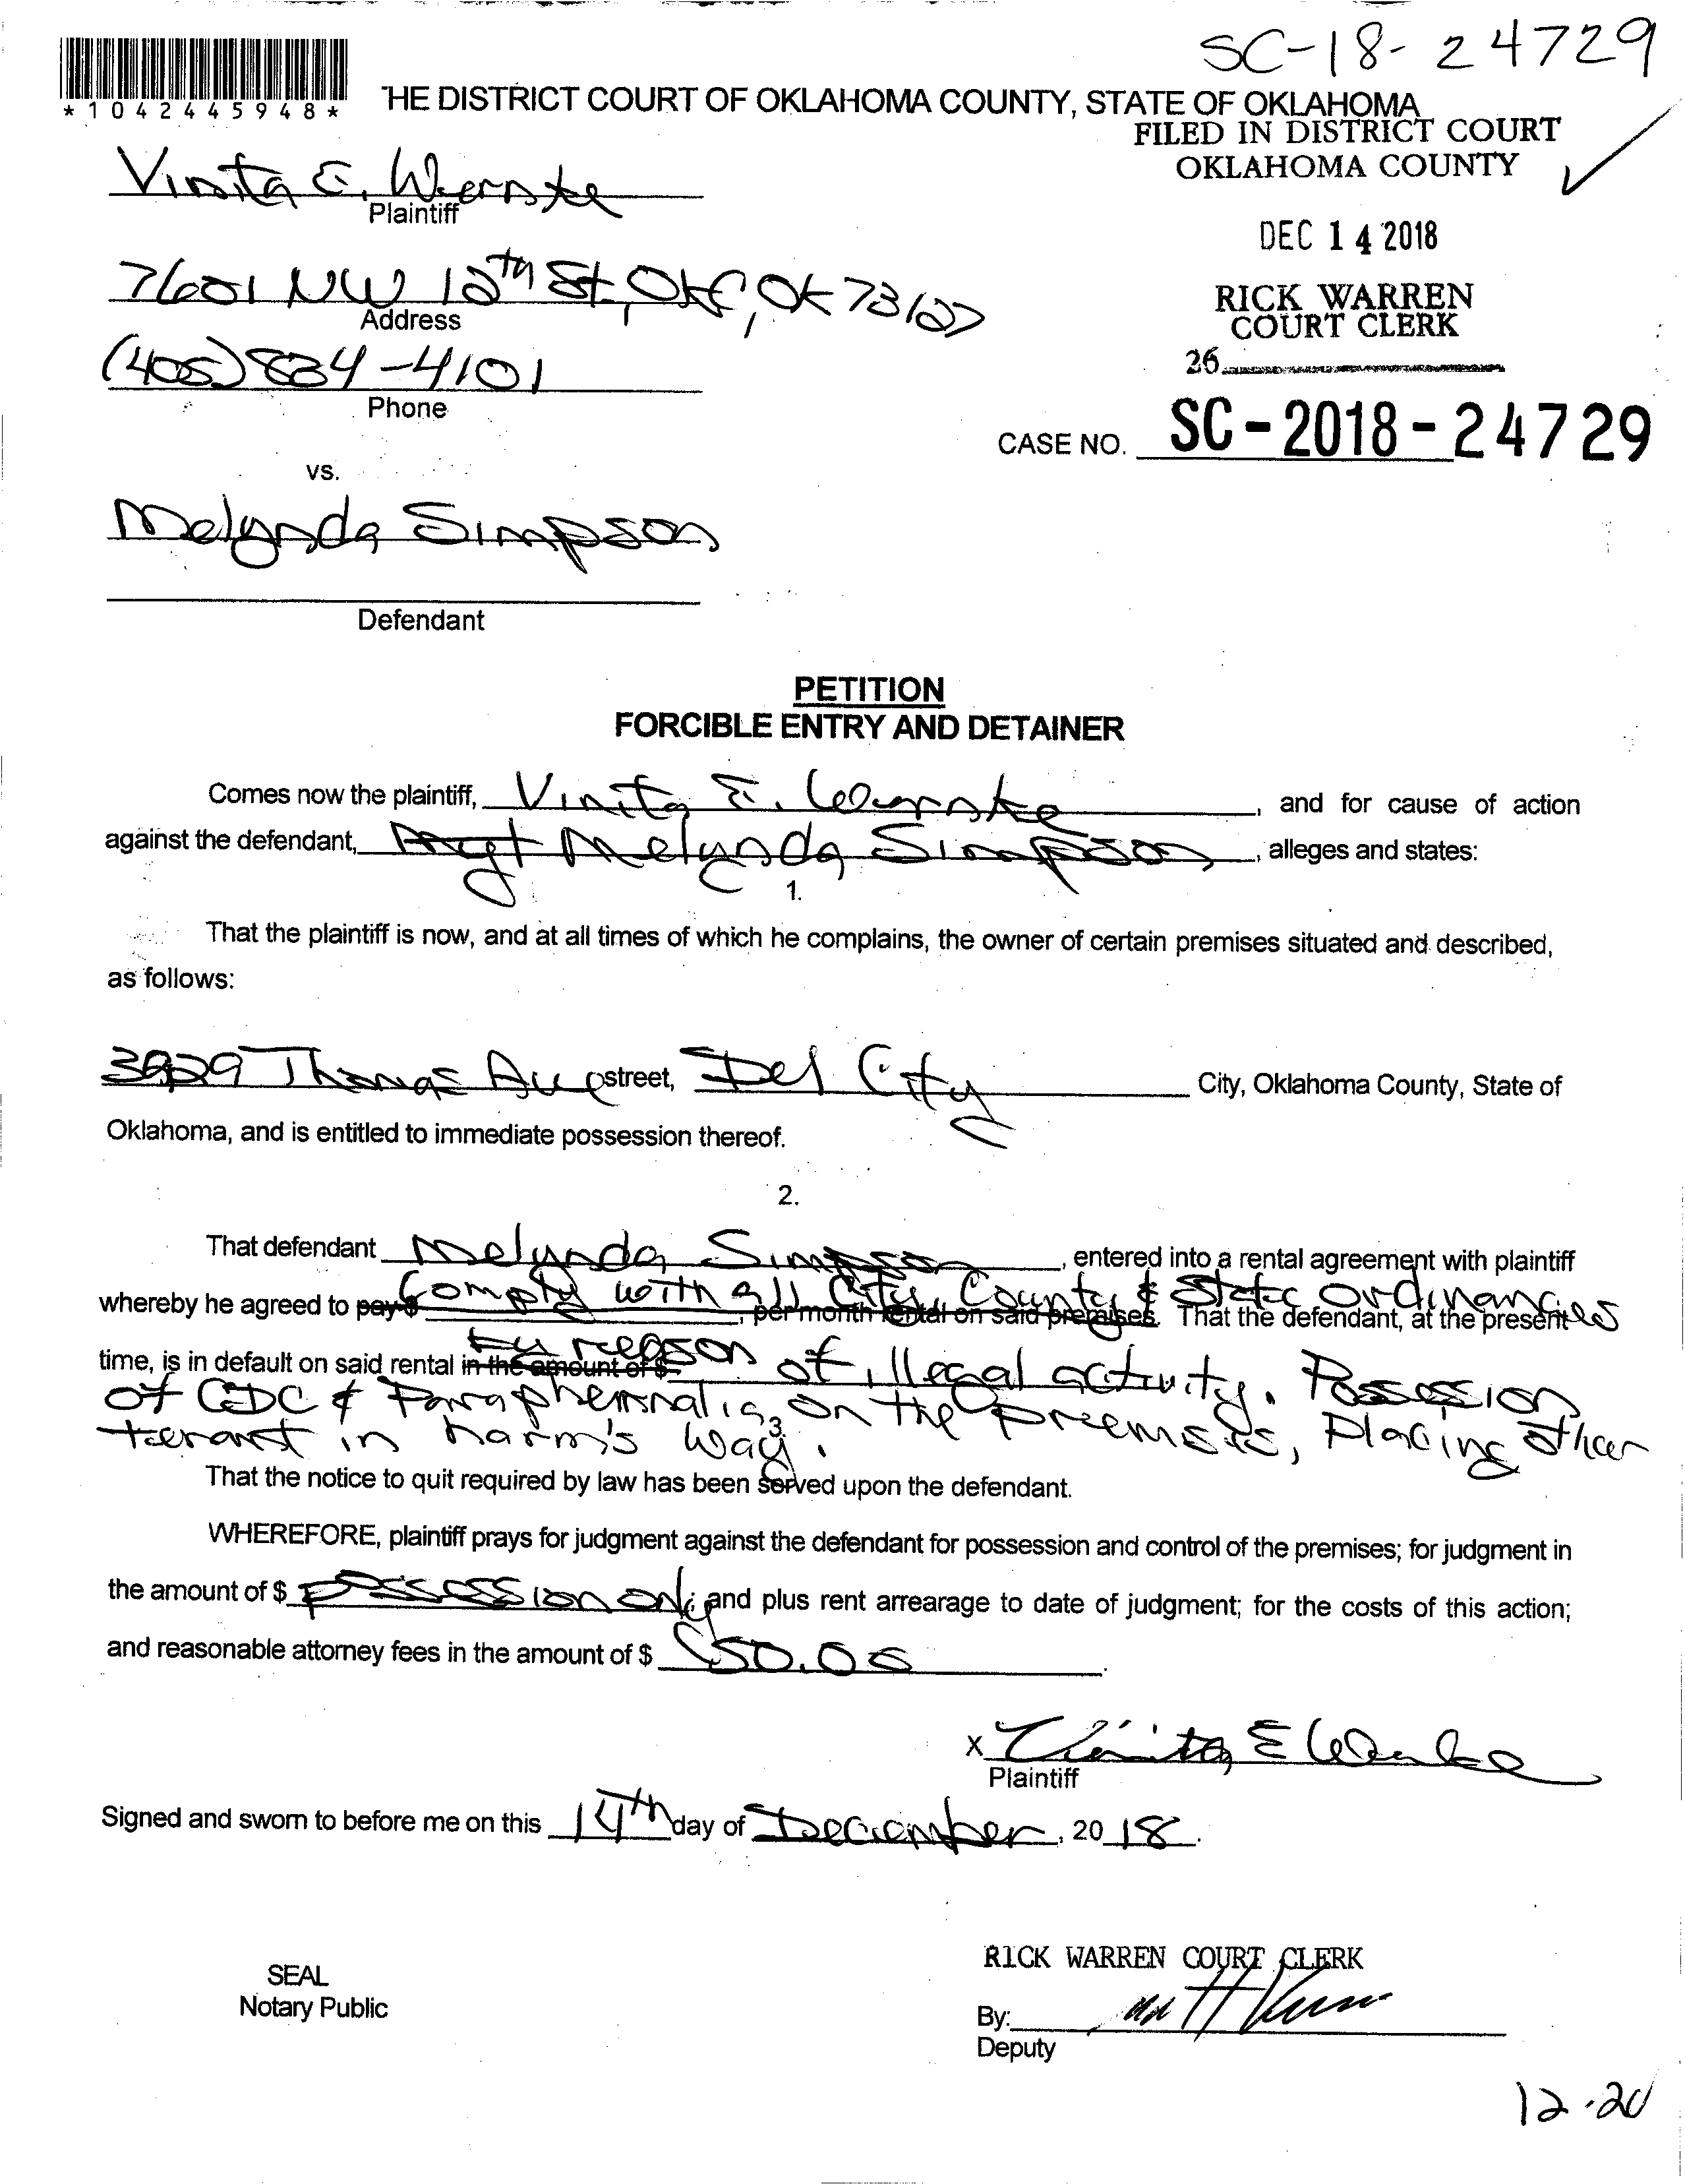 SC-18-24729
*1042445948*
THE DISTRICT COURT OF OKLAHOMA COUNTY, STATE OF OKLAHOMA
FILED IN DISTRICT COURT
OKLAHOMA COUNTY
Vinita E. Wernske
Plaintiff
DEC 14 2018
7601 NW 10th St, OKC, OK 73127
Address
RICK WARREN
COURT CLERK
(405) 834-4101
Phone
26
CASE NO. SC-2018-24729
vs.
Melynda Simpson
Defendant
PETITION
FORCIBLE ENTRY AND DETAINER
Comes now the plaintiff, Vinita E. Wernske, and for cause of action
against the defendant, Melynda Simpson, alleges and states:
1.
That the plaintiff is now, and at all times of which he complains, the owner of certain premises situated and described,
as follows:
3929 Thomas street, Del City City, Oklahoma County, State of
Oklahoma, and is entitled to immediate possession thereof.
2.
That defendant Melynda Simpson, entered into a rental agreement with plaintiff
whereby he agreed to pay $ Comply with all City, County & State Ordinances, per month rental on said premises. That the defendant, at the present
time, is in default on said rental in the amount of $ by reason of illegal activity. Possession
of CDC & Paraphernalia, on the premises, Placing other
tenant in harm's way.
3.
That the notice to quit required by law has been served upon the defendant.
WHEREFORE, plaintiff prays for judgment against the defendant for possession and control of the premises; for judgment in
the amount of $ possession only and plus rent arrearage to date of judgment; for the costs of this action;
and reasonable attorney fees in the amount of $ 50.00.
x Vinita E Wernske
Plaintiff
Signed and sworn to before me on this 14th day of December, 2018.
RICK WARREN COURT CLERK
SEAL
Notary Public
By:
Deputy
12-20